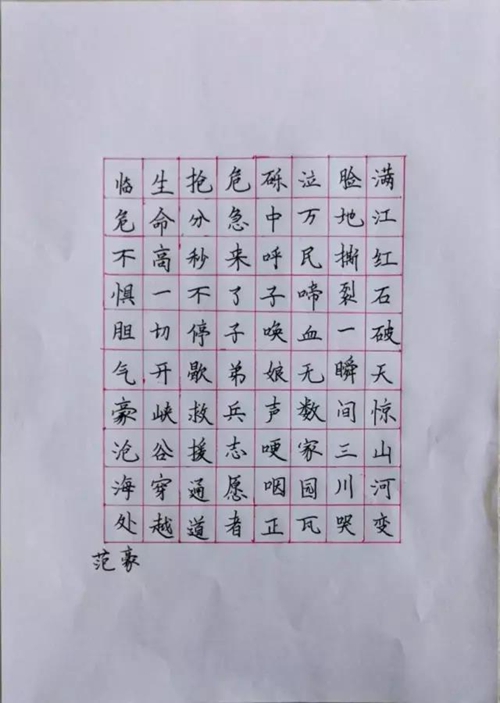 满江红石破天惊山河变
脸地撕裂一瞬间三川哭
泣万民啼血无数家园瓦
砾中呼子唤娘声哽咽正
危急来了子弟兵志愿者
抢分秒不停歇救援通道
生命高一切开峡谷穿越
临危不惧胆气豪沧海处
范豪